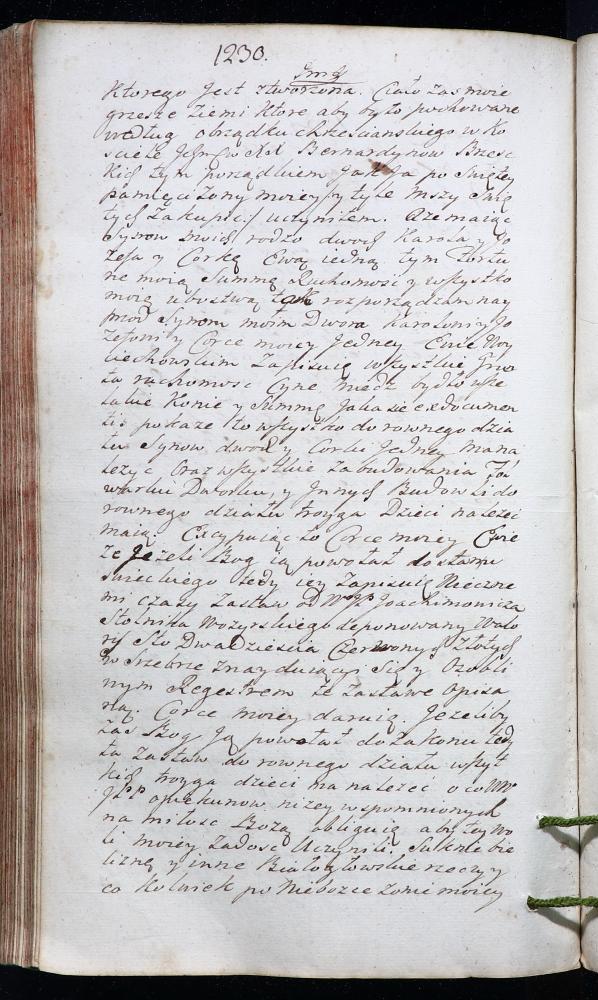 1230.
Ktorego jest ztworzona. Ciało zas moie
grzeszne ziemi ktore aby było pochowane
według obrządku chrzescianskiego w Ko
sciele XX Bernardynow Brzesc
kich tym porządkiem jak ja po Swiętey
pamięci Zony moiey y tyle Mszy Swię
tych zakupic uczyniłem. A że maiąc
Synow moich rodzo dwoch Karola y Jo
zefa y Corkę Ewą iedną tym Fortu
ne moią Summę Ruchomosc y wszystko
moie ubostwą tak rozporządzam nay
przod Synom moim Dwom Karolowi y Jo
zefowi y Corce moiey Jedney Ewie Woy
ciechowskim Zapisuię wszystkie
ta ruchomosc Cynę miedz bydło
Konie y Summę Jaka się ex documen
tis pokaze to wszystko do rownego dzia
łu Synow dwoch y Corki Jedney ma na
lezyc oraz wszystkie zabudowania Fol
warku Dworku, y Jnnych Budowli do
rownego działu troyga Dzieci nalezec
maią. Excypuiąc to Corce moiey Ewie
ze Jezeli Bog ią powołał do stanu
swieckiego tedy iey Zapisuię Wieczne
mi czasy Zastaw od Joachimowicza
Stolnika Mozyrskiego deponowany Walo
ru Sto Dwadziescia Czerwonych Złotych
w Srzebrze znayduiący się y Osobli
wym Regestrem ze Zastawe opisa
ny. Corce moiey daruię. Jezeliby
zas Bog Ją powołał do Zakonu tedy
ta Zastaw do rownego działu wszyt
kich troyga dzieci ma nalezec o co WW
JPP opiekunow nizey wspomnionych
na miłosc Bozą obliguię aby tey wo
li moiey zadosc Uczynili Suknie bie
liznę y inne Białogłowskie rzeczy y
co kolwiek po Nieboszce Zonie moiey